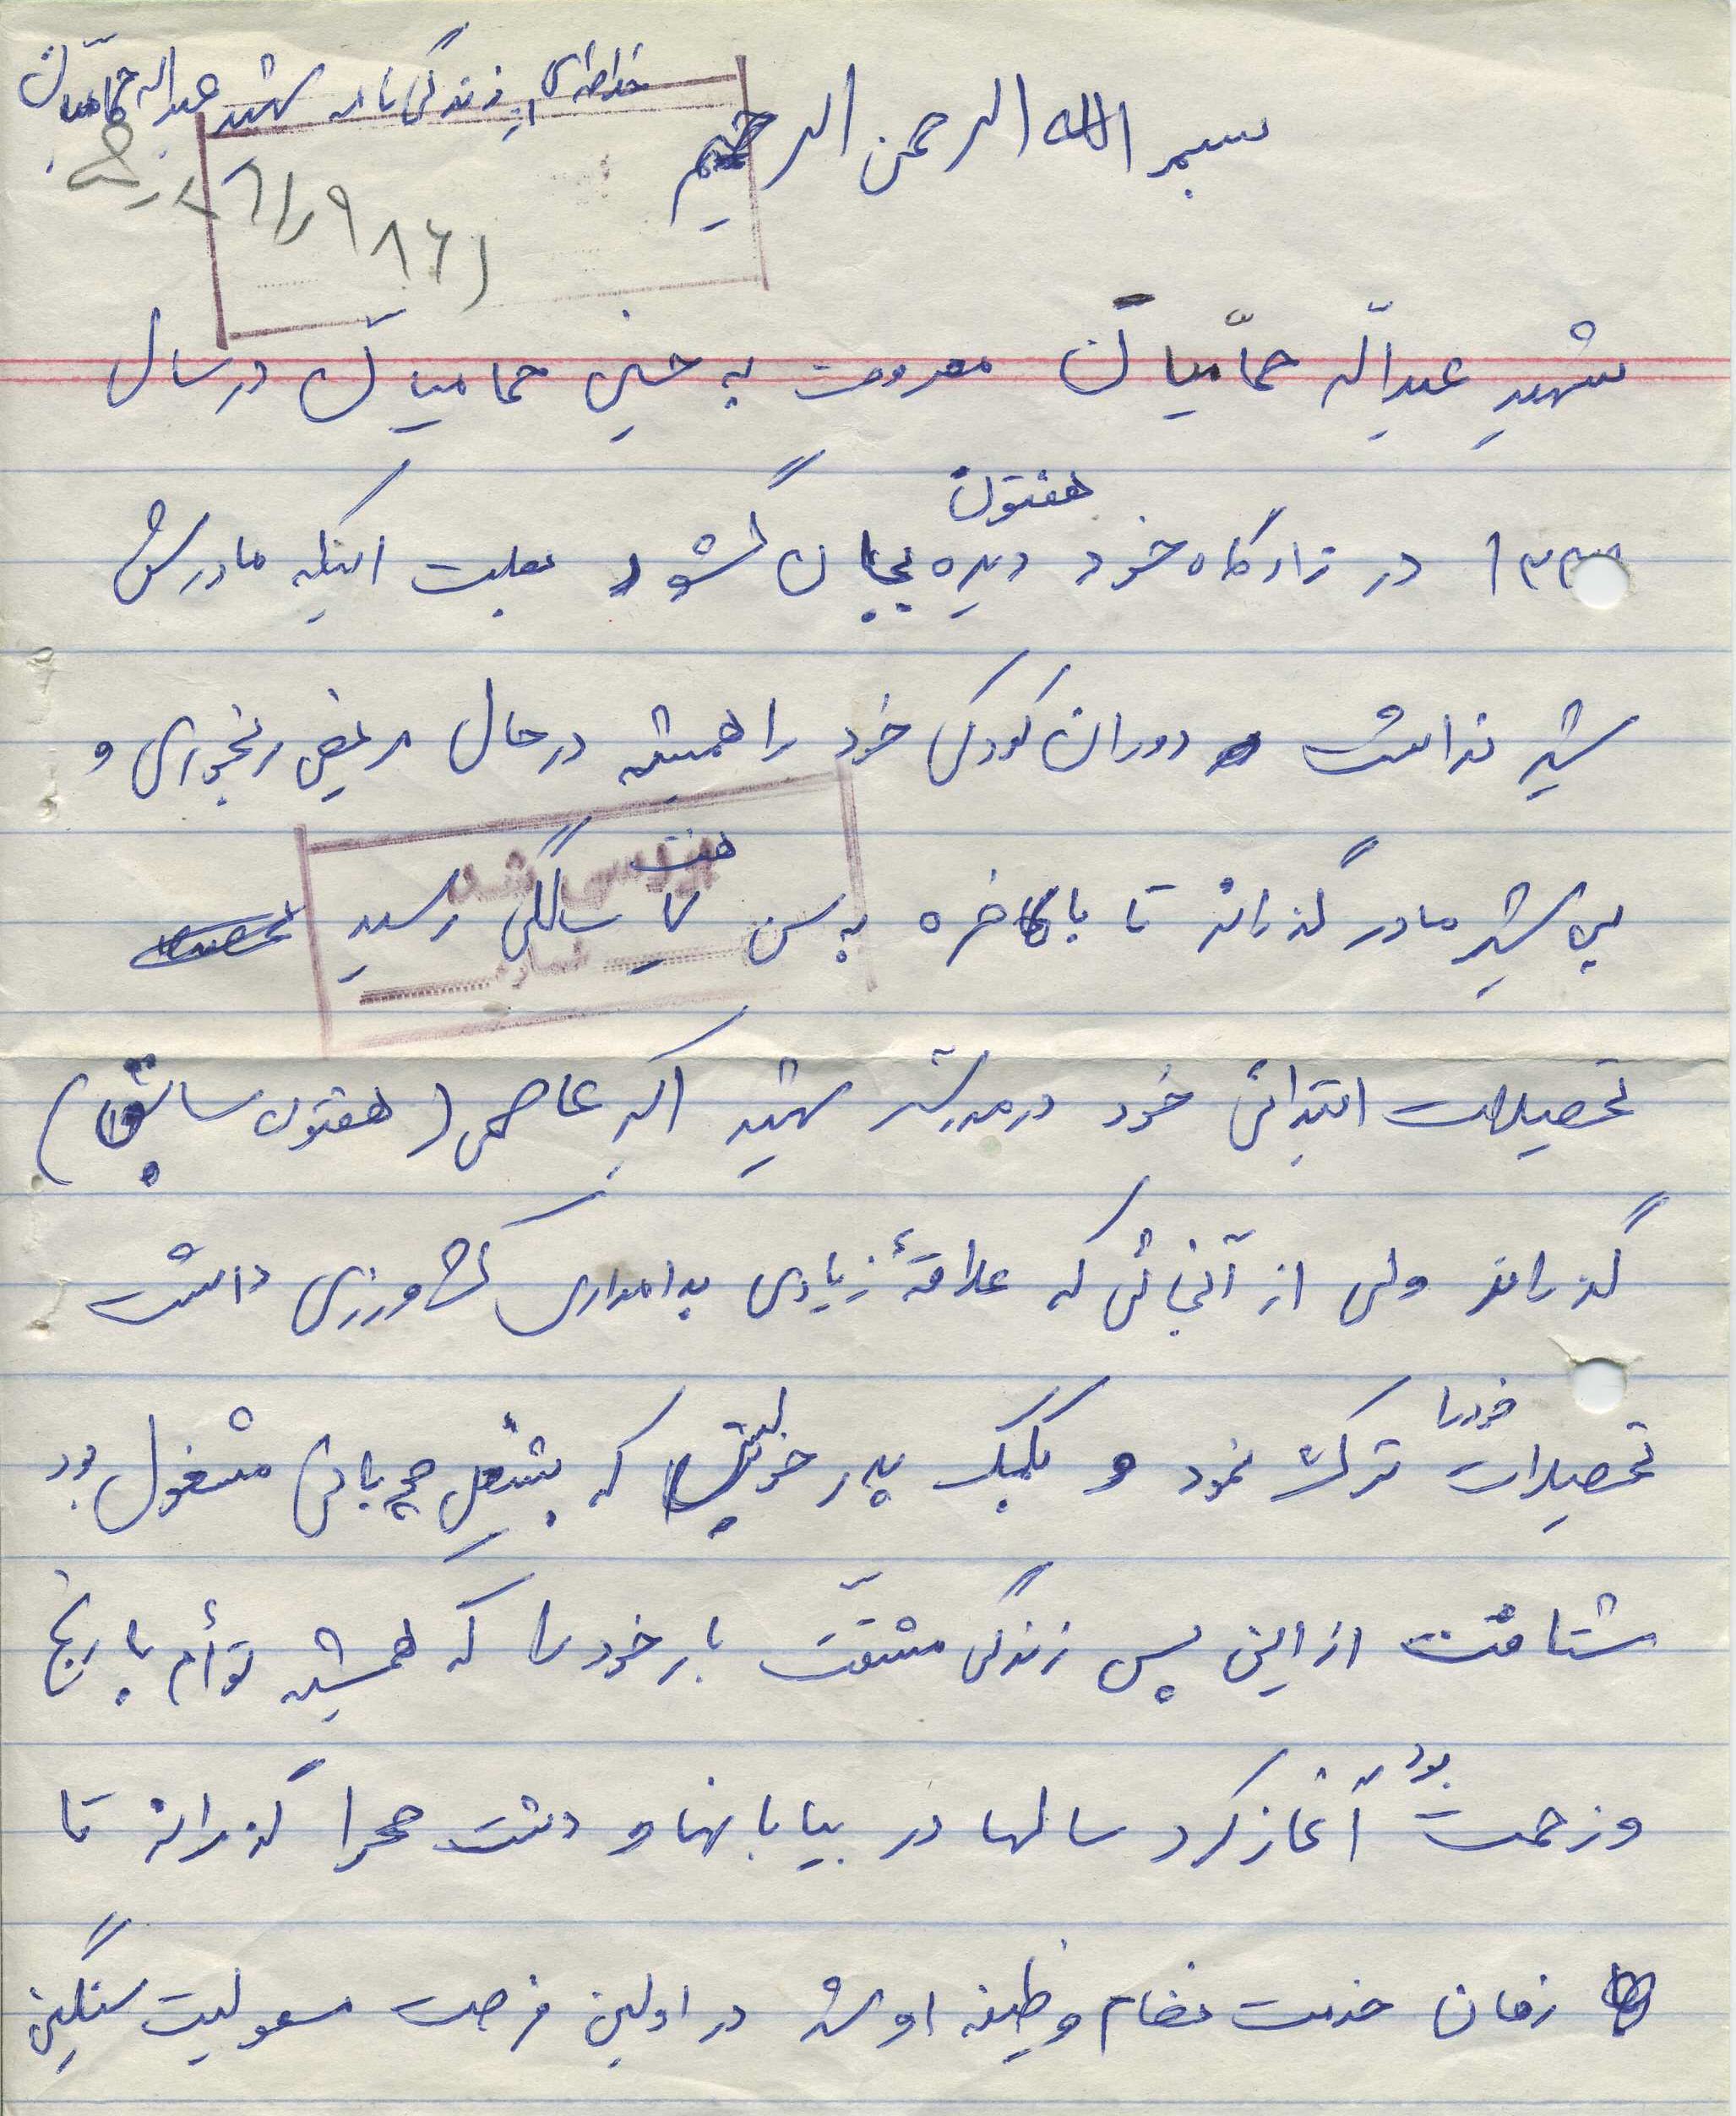 خلاصه‌ای از زندگی نامه شهید عبداله حمامیان
بسم الله الرحمن الرحیم
۱۸۶۹
شهید عبداله حمّامیان معروف به حسین حمامیان در سال
هفتون
در زادگاه خود دیده بجهان گشود بعلت اینکه مادرش
شیر نداشت و دوران کودکی خود را همیشه در حال مریضی رنجوری و
بی شیر مادر گذراند تا بالاخره به سن هفت سالگی رسید
بررسی شد
شماره
تحصیلات ابتدائی خود در مدرسه شهید اکبر عاصمی (هفتون سابق)
گذراند ولی از آنجائی که علاقهٔ زیادی بدامداری کشاورزی داشت
تحصیلات خود را ترک نمود و بکمک پدر خویش که بشغل چوپانی مشغول بود
شتافت از این پس زندگی مشقّت بار خود را که همیشه توأم با رنج
و زحمت بود آغاز کرد سالها در بیابانها و دشت صحرا گذراند تا
زمان خدمت نظام وظیفه او شد در اولین فرصت مسولیت سنگین